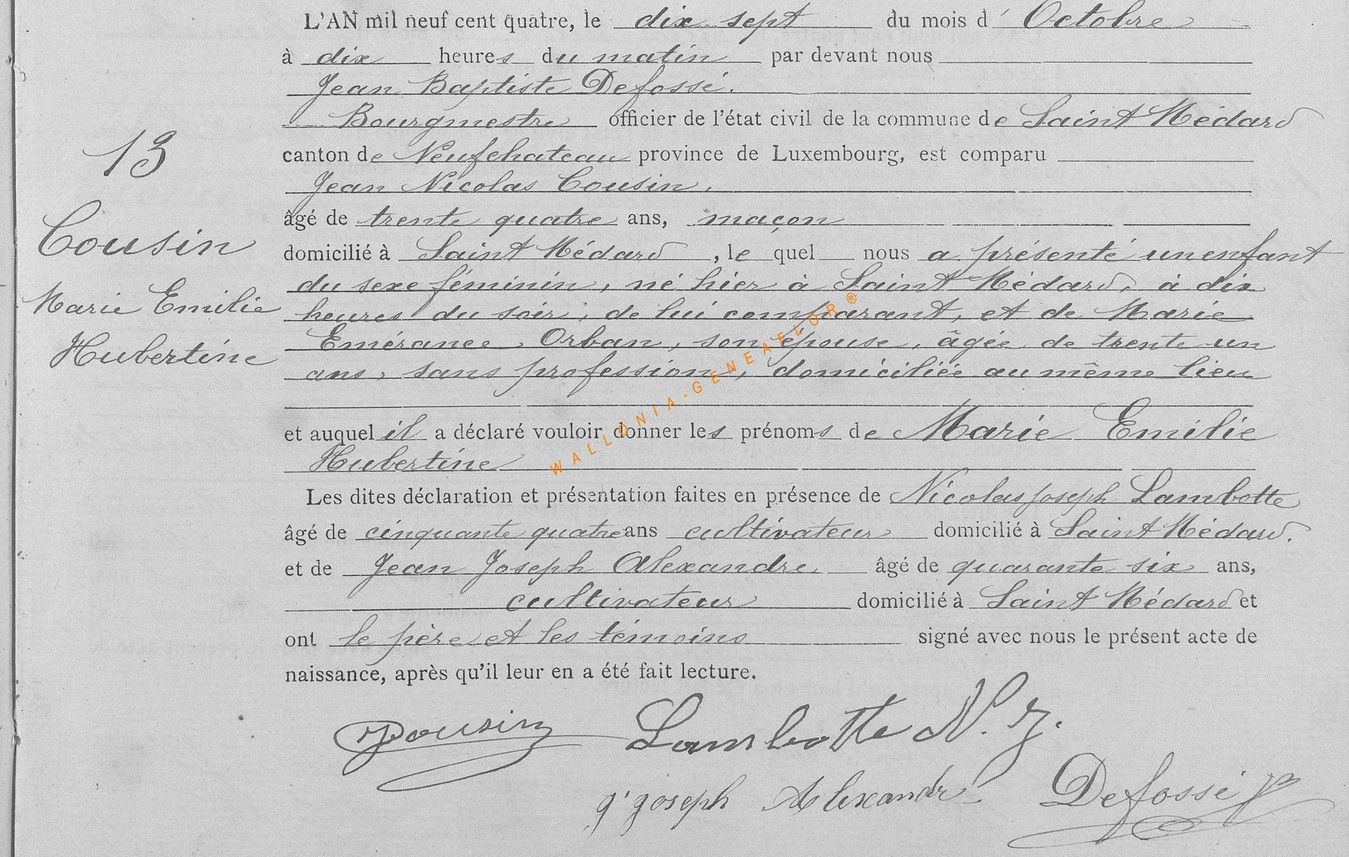 L'AN mil neuf cent quatre, le dix sept du mois d' Octobre
à dix heures du matin par devant nous
Jean Baptiste Defossé.
Bourgmestre officier de l'état civil de la commune de Saint Médard
canton de Neufchateau province de Luxembourg, est comparu
Jean Nicolas Cousin.
âgé de trente quatre ans, maçon
domicilié à Saint Médard, le quel nous a présenté un enfant
du sexe féminin, né hier à Saint Médard, à dix
heures du soir, de lui comparant, et de Marie
Emérance Orban, son épouse, âgée de trente un
ans, sans profession, domiciliée au même lieu
et auquel il a déclaré vouloir donner les prénoms de Marie Emilie
Hubertine
Les dites déclaration et présentation faites en présence de Nicolas Joseph Lambotte
âgé de cinquante quatre ans cultivateur domicilié à Saint Médard.
et de Jean Joseph Alexandre. âgé de quarante six ans,
cultivateur domicilié à Saint Médard et
ont le père et les témoins signé avec nous le présent acte de
naissance, après qu'il leur en a été fait lecture.
13
Cousin
Marie Emilie
Hubertine
WALLONIA-GENEAFLOR®
Cousin
Lambotte N. J.
J. Joseph Alexandre
Defossé JB